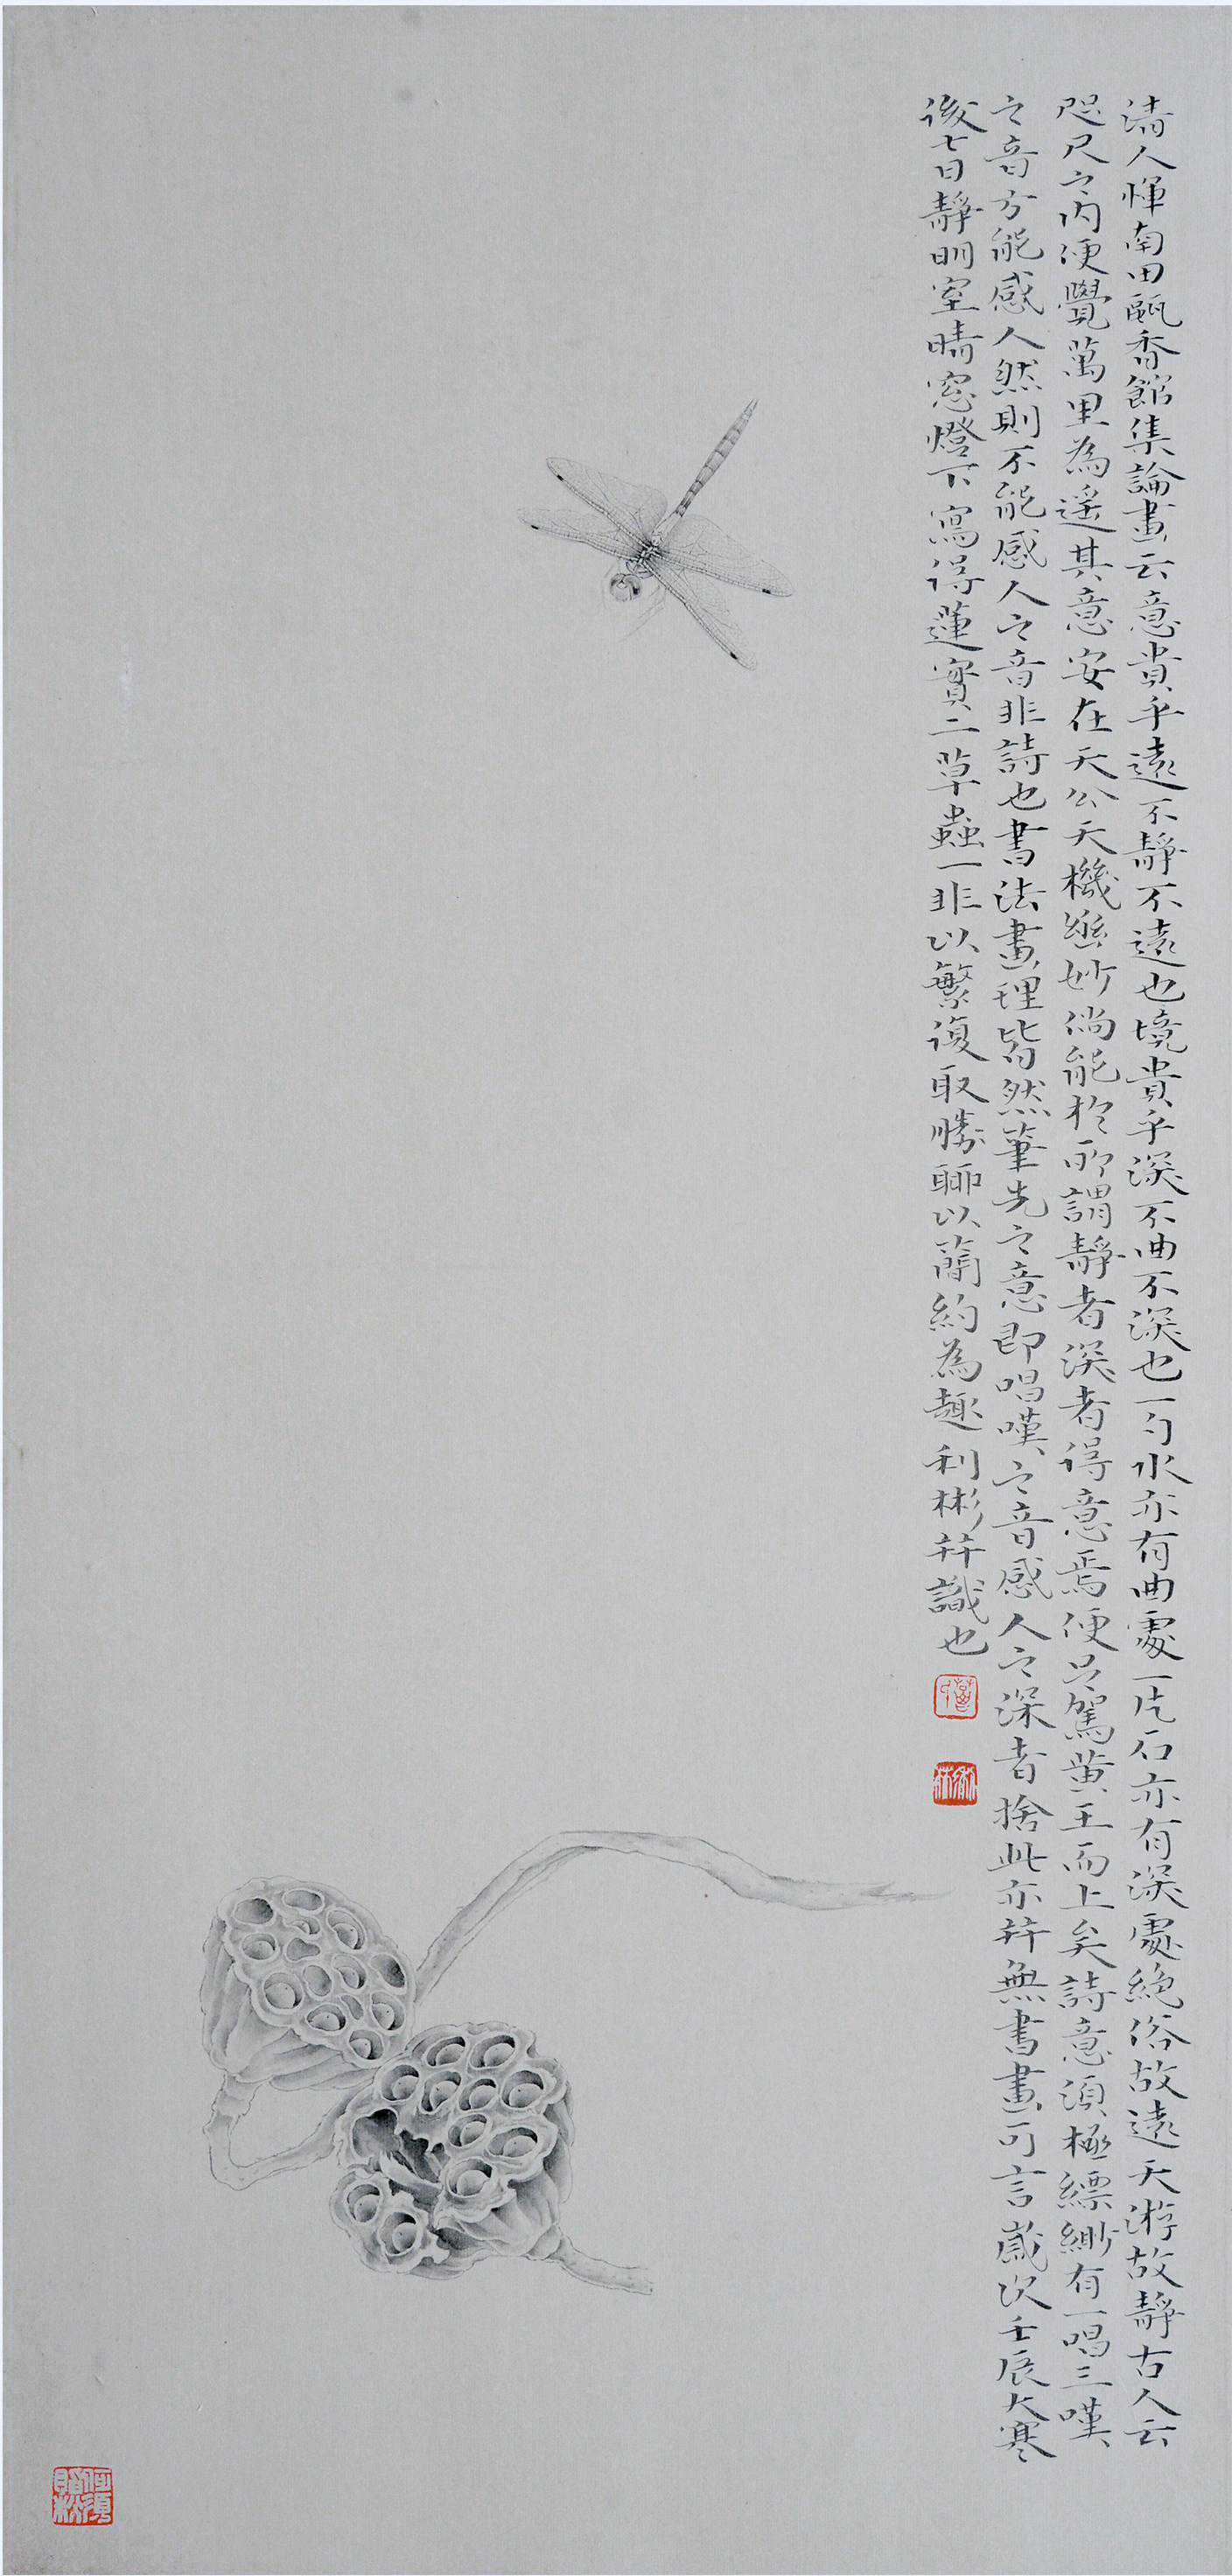 清人惲南田甌香館集論畫云意貴乎遠不靜不遠也境貴乎深不曲不深也一勺水亦有曲處一片石亦有深處絕俗故遠天游故靜古人云
咫尺之內便覺萬里為遙其意安在天公天機幽妙倘能於所謂靜者深者得意焉便足駕黃王而上矣詩意須極縹緲有一唱三嘆
之音方能感人然則不能感人之音非詩也書法畫理皆然筆先之意即唱嘆之音感人之深者捨此亦幷無書畫可言歲次壬辰大寒
後七日靜明室晴窓燈下寫得蓮實二草蟲一非以繁復取勝聊以簡約為趣利彬幷識也